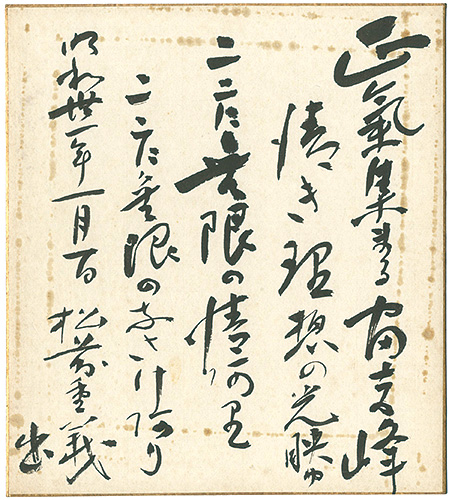 正氣集まる富士峰
清き理想の光映ゆ
ここに無限の情の里
ここに無限のなさけあり
昭和廿一年一月一日 松前重義